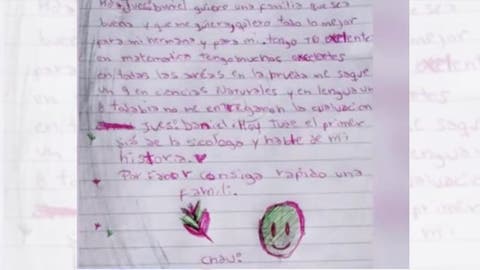 quiere una familia que sea
buena y que me quiera y quiero todo lo mejor
para mi hermana y para mi. tengo 10 exelente
en matematica tengo muchas exelentes
en todas las areas en la prueba me saque
un 9 en ciencias Naturales y en lengua un
8 todabia no me entregaron la evaluacion
Juez: Daniel. Hoy Tuve el primer
dia de la sicologa y hable de mi
historia.
Por favor consiga rapido una
famili.
chau: